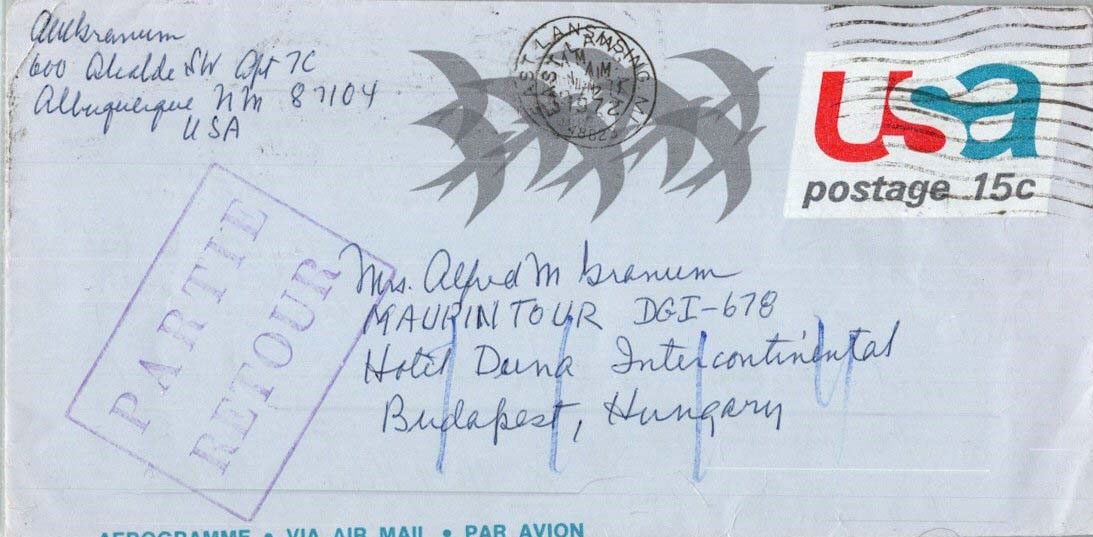 AMGranum
600 Alcalde SW Apt 7C
Albuquerque NM 87104
USA
EAST LANSING, MI
AM
1972
usa
postage 15c
PARTIE
RETOUR
Mrs. Alfred M Granum
MAUPINTOUR DGI-678
Hotel Duna Intercontinental
Budapest, Hungary
AEROGRAMME • VIA AIR MAIL • PAR AVION